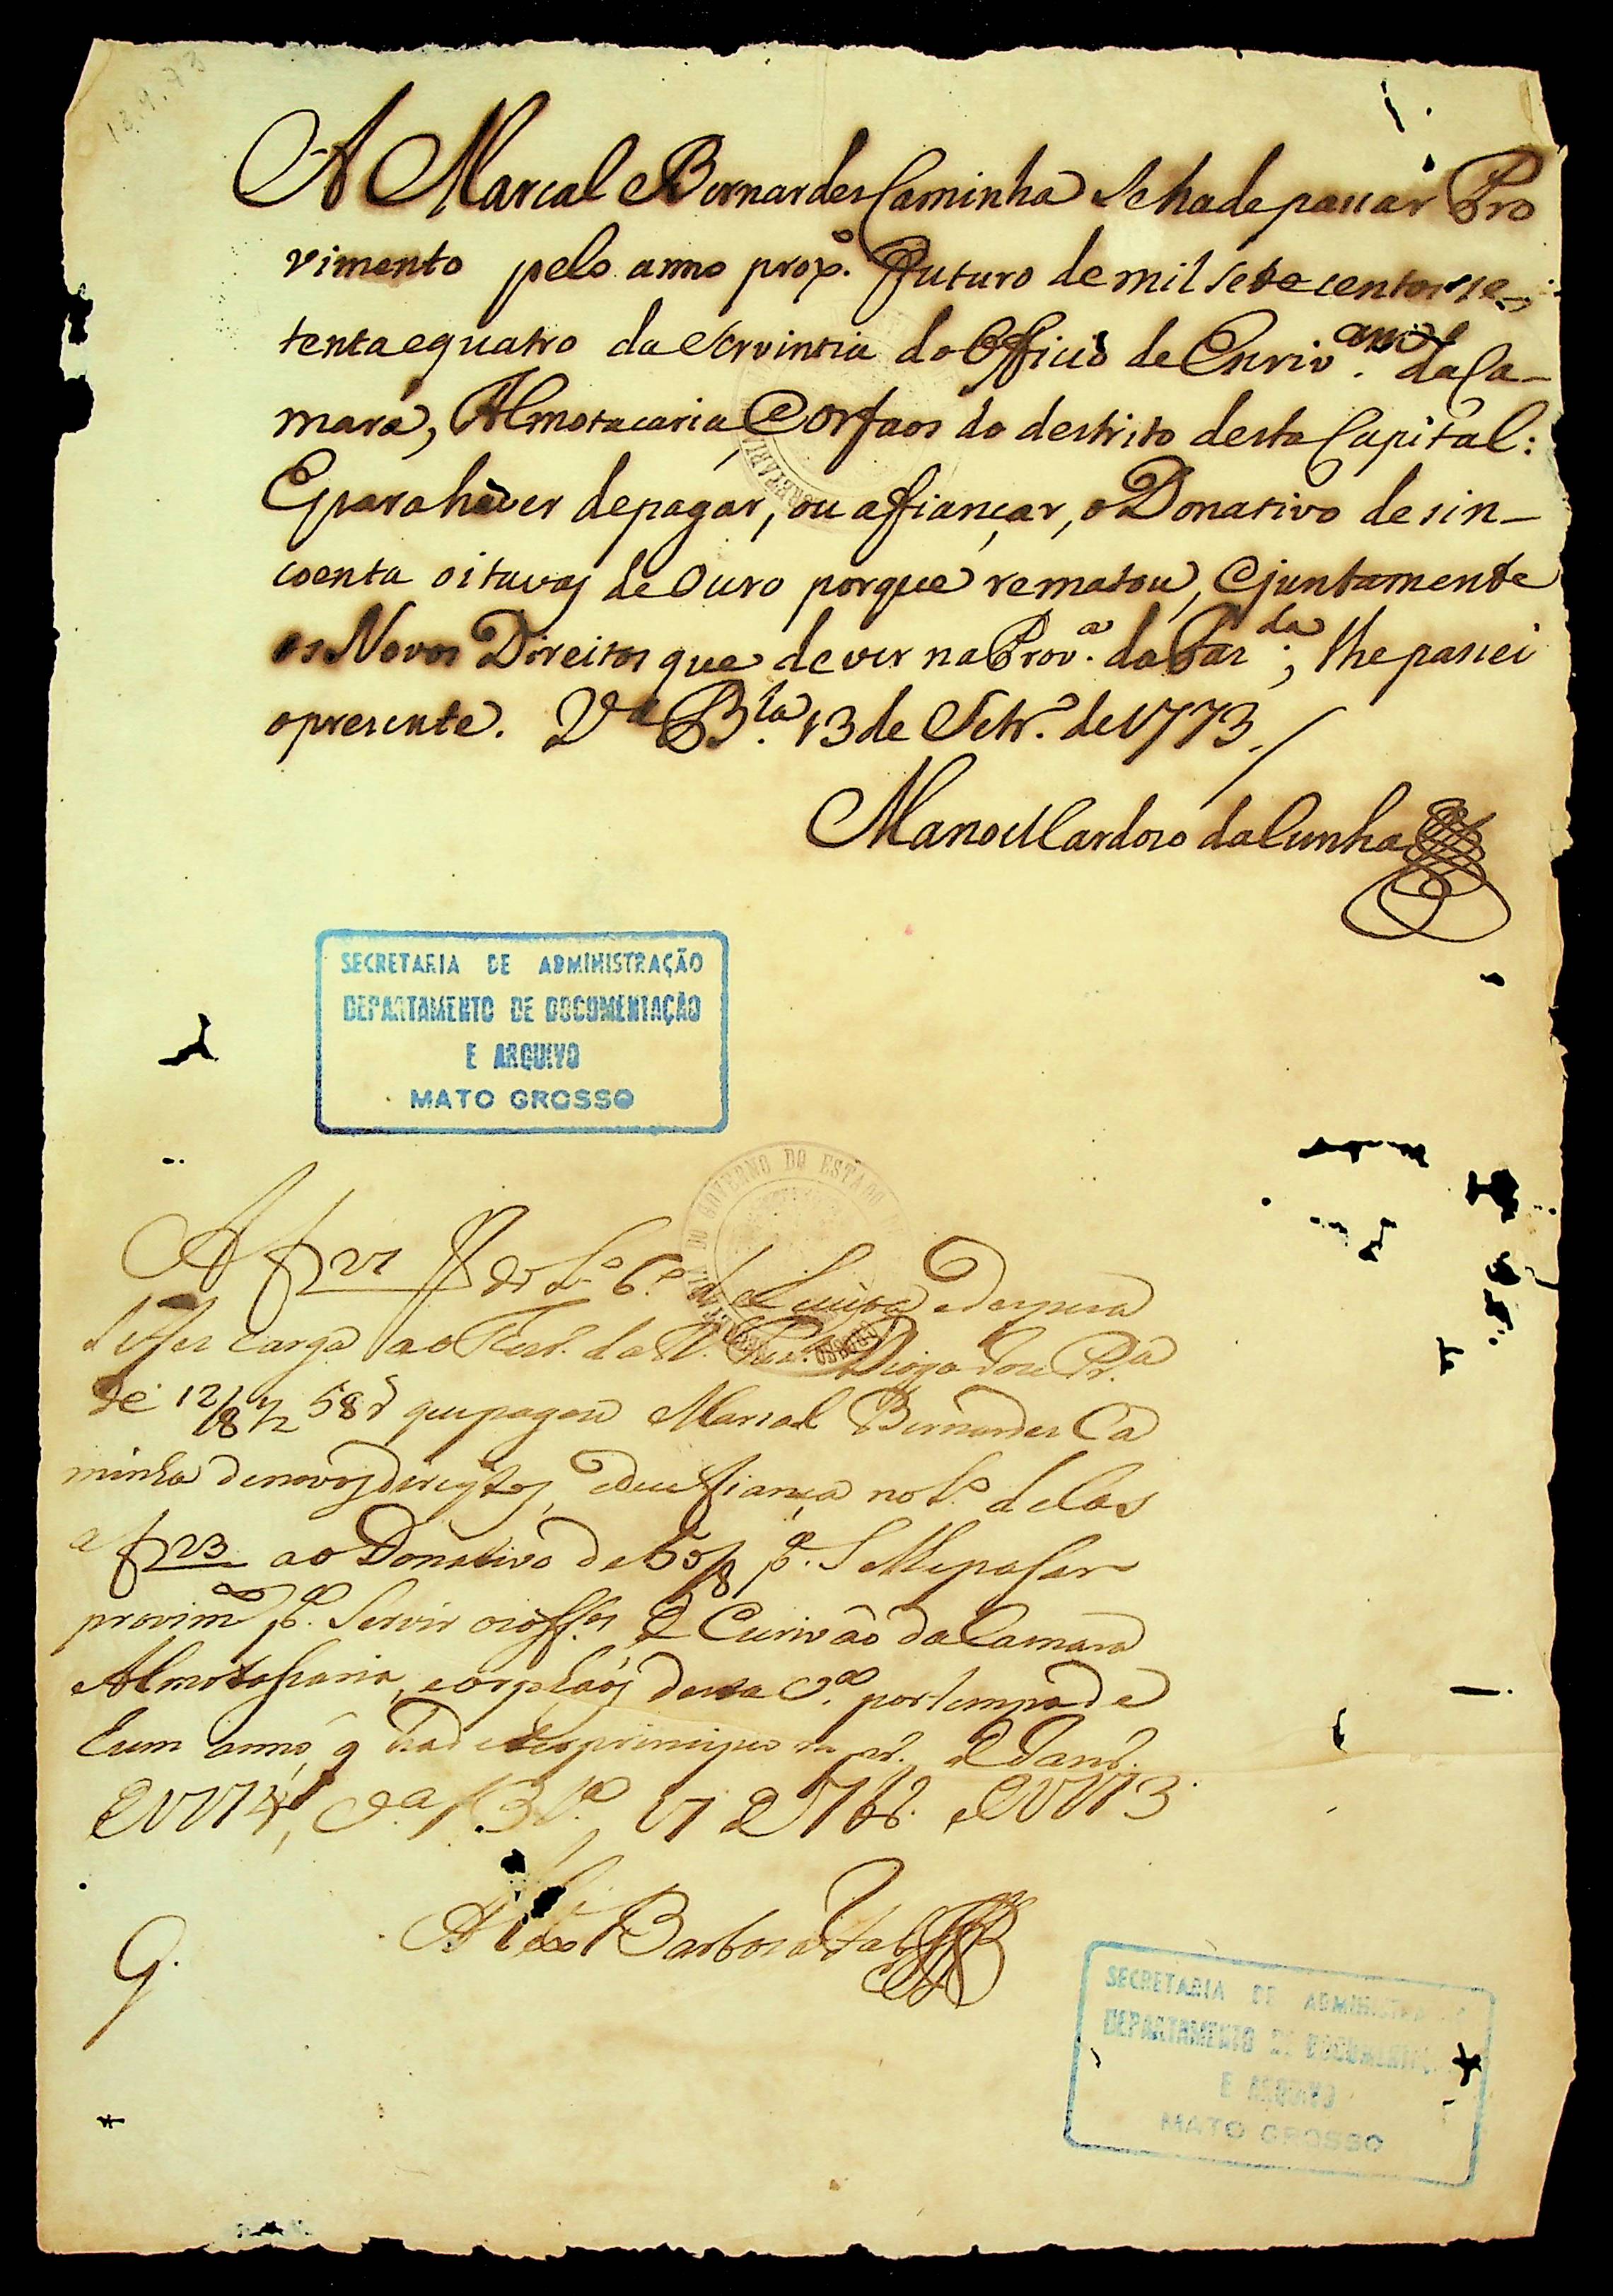 13.9.73
A Marcal Bernardes Caminha Se ha de passar Pro
vimento pelo anno prox.º Futuro de mil Sete centos se-
tenta e quatro da serventia do Officio de Escriv.am da Ca-
mara, Almotacaria, e Orfaos do destrito desta Capital:
E para haver de pagar, ou afiançar, o Donativo de sin-
coenta oitavas de Ouro porque rematou, e juntamente
os Novos Direitos que dever na Prov.a da Faz.da; lhe passei
o presente. V.a B.la 13 de Setr.º de 1773./
Manoel Cardozo da Cunha
SECRETARIA DE ADMINISTRAÇÃO
DEPARTAMENTO DE DOCUMENTAÇÃO
E ARQUIVO
MATO GROSSO
DO GOVERNO DO ESTADO
A f 21 do L.º 6.º de Receita e despeza
carga ao Thes. da R. Faz. Diogo Joze Pr.a
de 12/8 1/2 58 r que pagou Marsal Bernardes Ca
minha de novos direytos, e deu fiança no L.º dellas
a f 23 ao Donativo de 50/8 p.a Se lhe pasar
provim.to p.a Servir os off.os de Escrivão da Camara
Almotasaria, e orphãos desta V.a por tempo de
hum anno, q hade ter principio em pr. de Janr.
de 1774, V.a B.la 17 de 7br. de 1773.
Barboza
G.
SECRETARIA DE ADMINISTRA
DEPARTAMENTO DE DOCUMENTAÇ
E ARQUIVO
MATO GROSSO